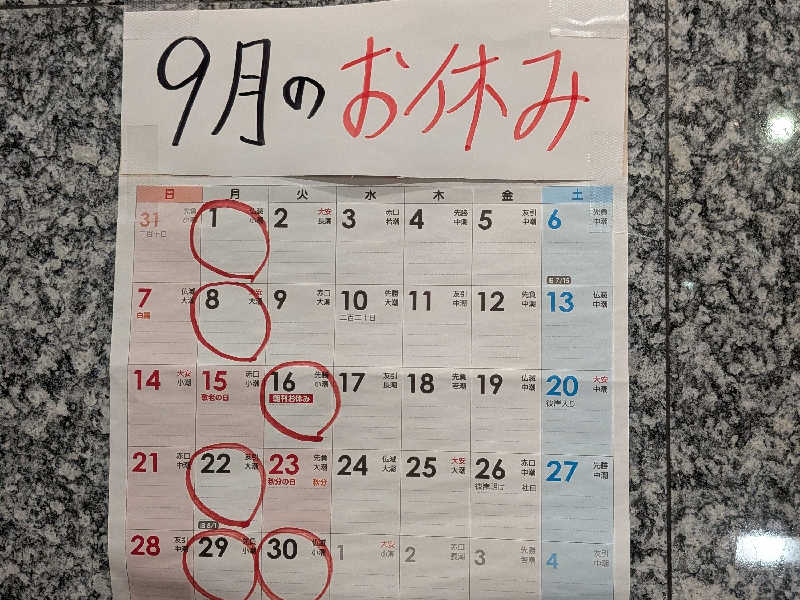 9月のお休み
日 月 火 水 木 金 土
31 先負 1 仏滅 2 大安 3 赤口 4 先勝 5 友引 6 先負
小潮 長潮 若潮 中潮 中潮 中潮
二百十日
旧7/15
7 仏滅 8 9 赤口 10 先勝 11 友引 12 先負 13 仏滅
大潮 大潮 大潮 中潮 中潮 中潮
白露 二百二十日
14 大安 15 赤口 16 先勝 17 友引 18 先負 19 仏滅 20 大安
小潮 小潮 小潮 長潮 若潮 中潮 中潮
敬老の日 朝刊お休み 彼岸入り
21 赤口 22 友引 23 先負 24 仏滅 25 大安 26 赤口 27 先勝
中潮 大潮 大潮 大潮 大潮 中潮 中潮
秋分の日 秋分 彼岸明け 社日
旧8/1
28 友引 29 先負 30 仏滅 1 大安 2 赤口 3 先勝 4 友引
中潮 小潮 小潮 小潮 長潮 若潮 中潮